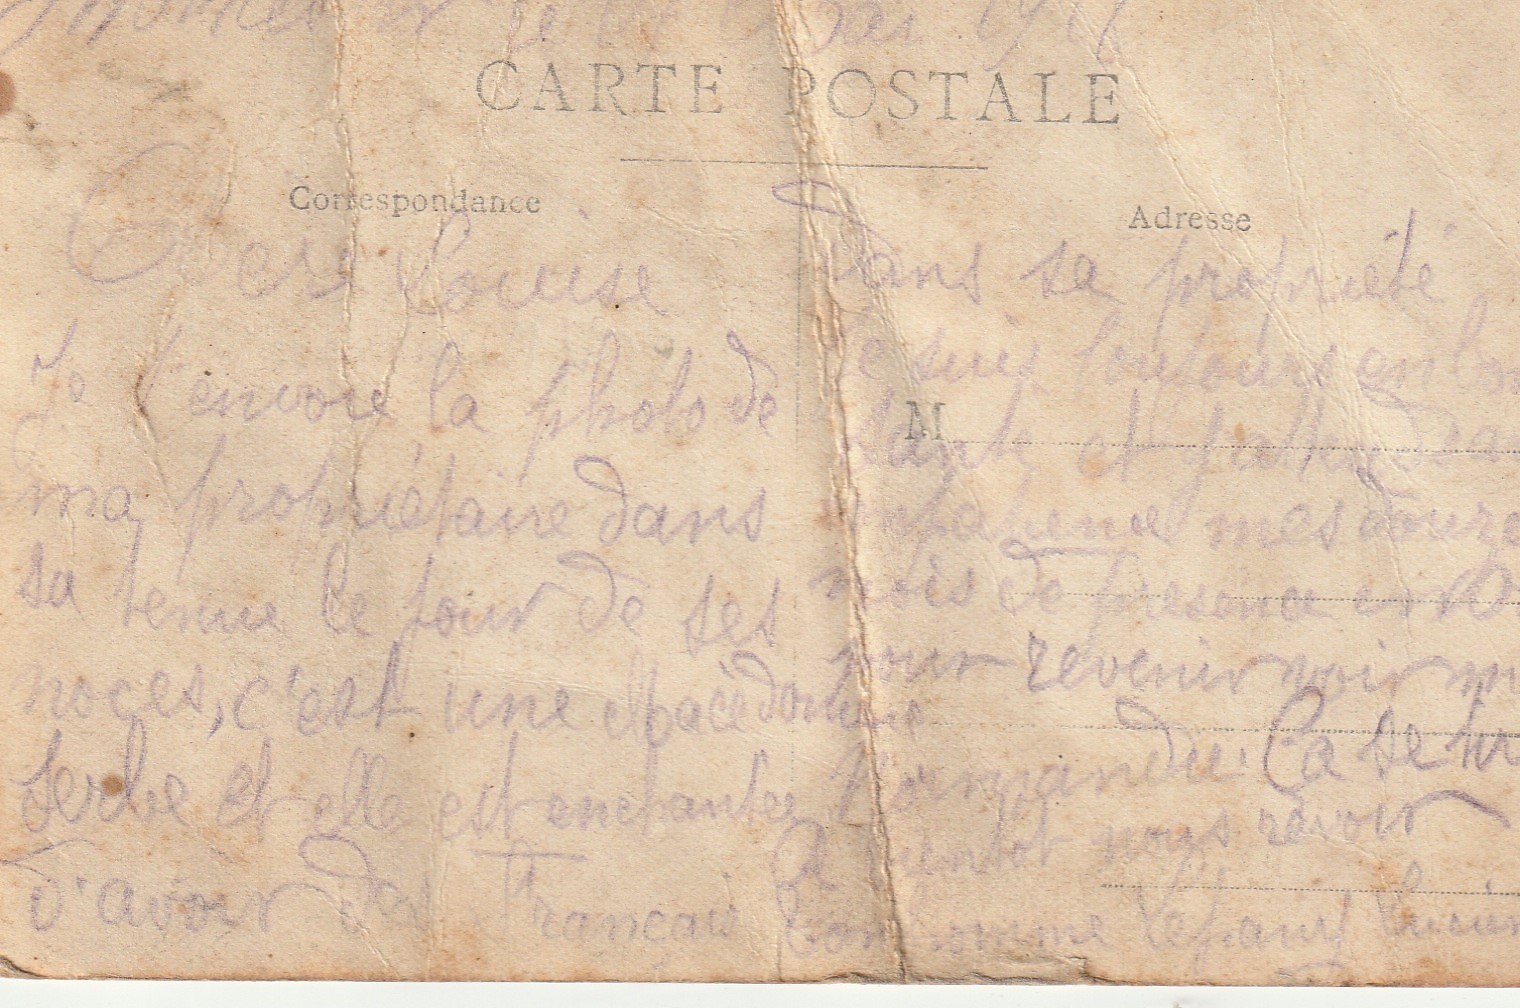 CARTE POSTALE
Correspondance
Adresse
M
Chere Louise
Je t'envoie la photo de
ma propriétaire dans
sa tenue le jour de ses
noces, c'est une Macédonienne
Serbe et elle est enchantée
d'avoir des Français
Dans sa propriété
Je suis toujours en bon
santé et j'attend
patience mes douze
mois de presence en
pour revenir voir m
Normandie. Ca se tir
A bientot nous revoir
Ton homme Lucien